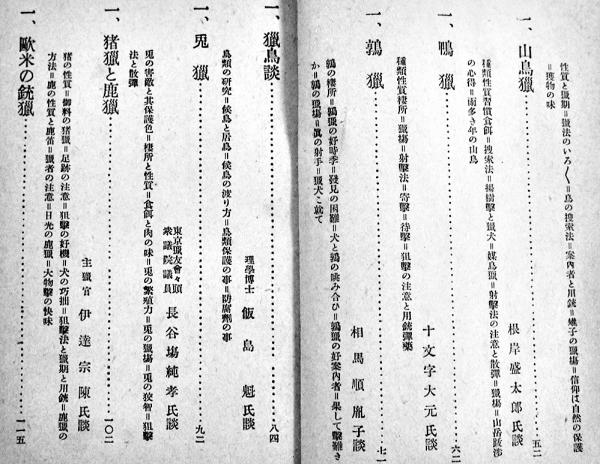 性質と獵期=獵法のいろ〱=鳥の搜索法=案内者と用銃=雉子の獵場=信仰は自然の保護
=獲物の味
一、山鳥獵
根岸盛太郎氏談
五二
種類性質習慣食餌=搜索法=揚樹擊と獵犬=媒鳥獵=射擊法の注意と散彈=獵場=山岳跋涉
の心得=雨多き年の山鳥
一、鴨獵
十文字大元氏談
六二
種類性質棲所=獵場=射擊法=寄擊=待擊=狙擊の注意と用銃彈藥
一、鶉獵
相馬順胤子談
七一
鶉の棲所=鶉獵の好時季=發見の困難=犬と鶉の眺み合ひ=鶉獵の好案內者=果して擊難き
か=鶉の獵場=眞の射手=獵犬に就て
一、獵鳥談
理學博士 飯島魁氏談
八四
鳥類の研究=候鳥と居鳥=候鳥の渡り方=鳥類保護の事=防腐劑の事
一、兎獵
東京獵友會々頭
衆議院議員 長谷場純孝氏談
九二
兎の害敵と其保護色=棲所と性質=食餌と肉の味=兎の繁殖力=兎の獵場=兎の狡智=狙擊
法と散彈
一、猪獵と鹿獵
主獵官 伊達宗陳氏談
一〇二
猪の性質=御料の猪獵=足跡の注意=狙擊の好機=犬の巧拙=狙擊法と獵期と用銃=鹿獵の
方法=鹿の性質と鹿笛=獵者の注意=日光の鹿獵=大物擊の快味
一、歐米の銃獵
一一五